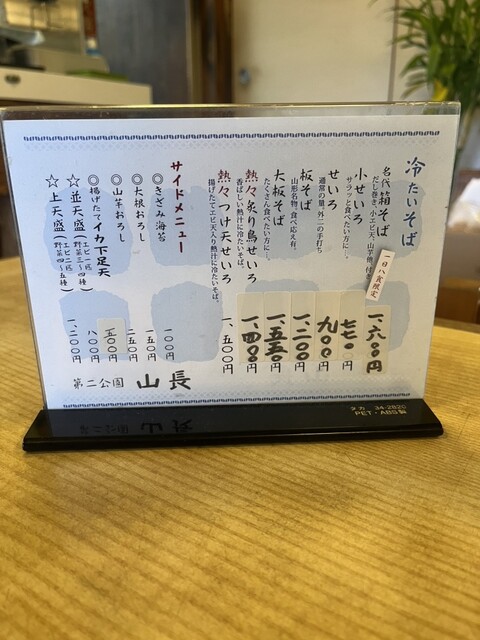 冷たいそば
名代箱そば
だし巻き、小エビ天、山芋他付き
一日八食限定
一、六〇〇円
小せいろ
サラッと食べたい方に…。
七七〇円
せいろ
通常の量、外二の手打ち
九〇〇円
板そば
山形名物、食べ応え有。
一、二〇〇円
大板そば
たくさん食べたい方に…。
一、五五〇円
熱々炙り鳥せいろ
香ばしい熱汁に冷たいそば。
一、四〇〇円
熱々つけ天せいろ
揚げたてエビ天入り熱汁に冷たいそば。
一、五〇〇円
サイドメニュー
◎きざみ海苔 一〇〇円
◎大根おろし 一五〇円
◎山芋おろし 二五〇円
◎揚げたてイカ下足天 五〇〇円
☆並天盛(エビ一尾 野菜三〜四種) 八〇〇円
☆上天盛(エビ二尾 野菜四〜五種) 一、二〇〇円
第二公園 山長
PET・ABS製